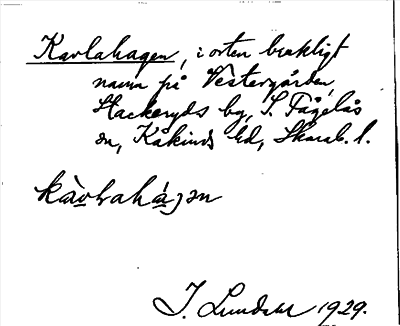 Karlahagen, i orten brukligt
namn på Västergården,
Stackeryds by, S. Fågelås
sn, Kåkinds hd, Skarab. l.
I. Lundahl 1929.